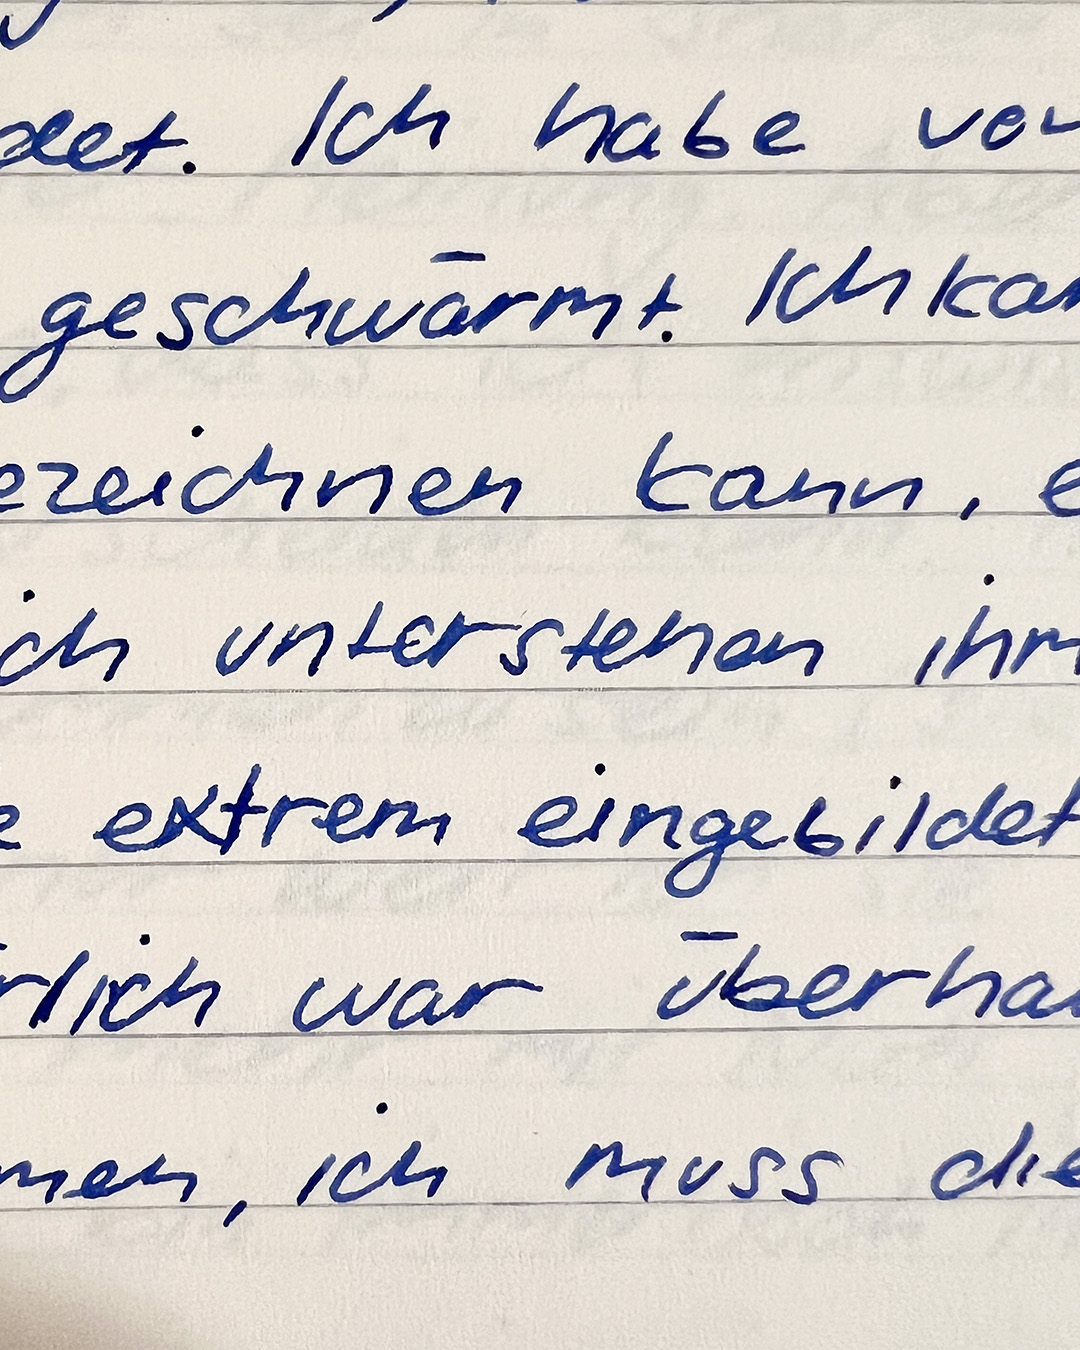 det. Ich habe vor
geschwärmt. Ich kan
ezeichnen kann, e
ich unterstehen ihm
e extrem eingebildet
rlich war überhau
men, ich muss die